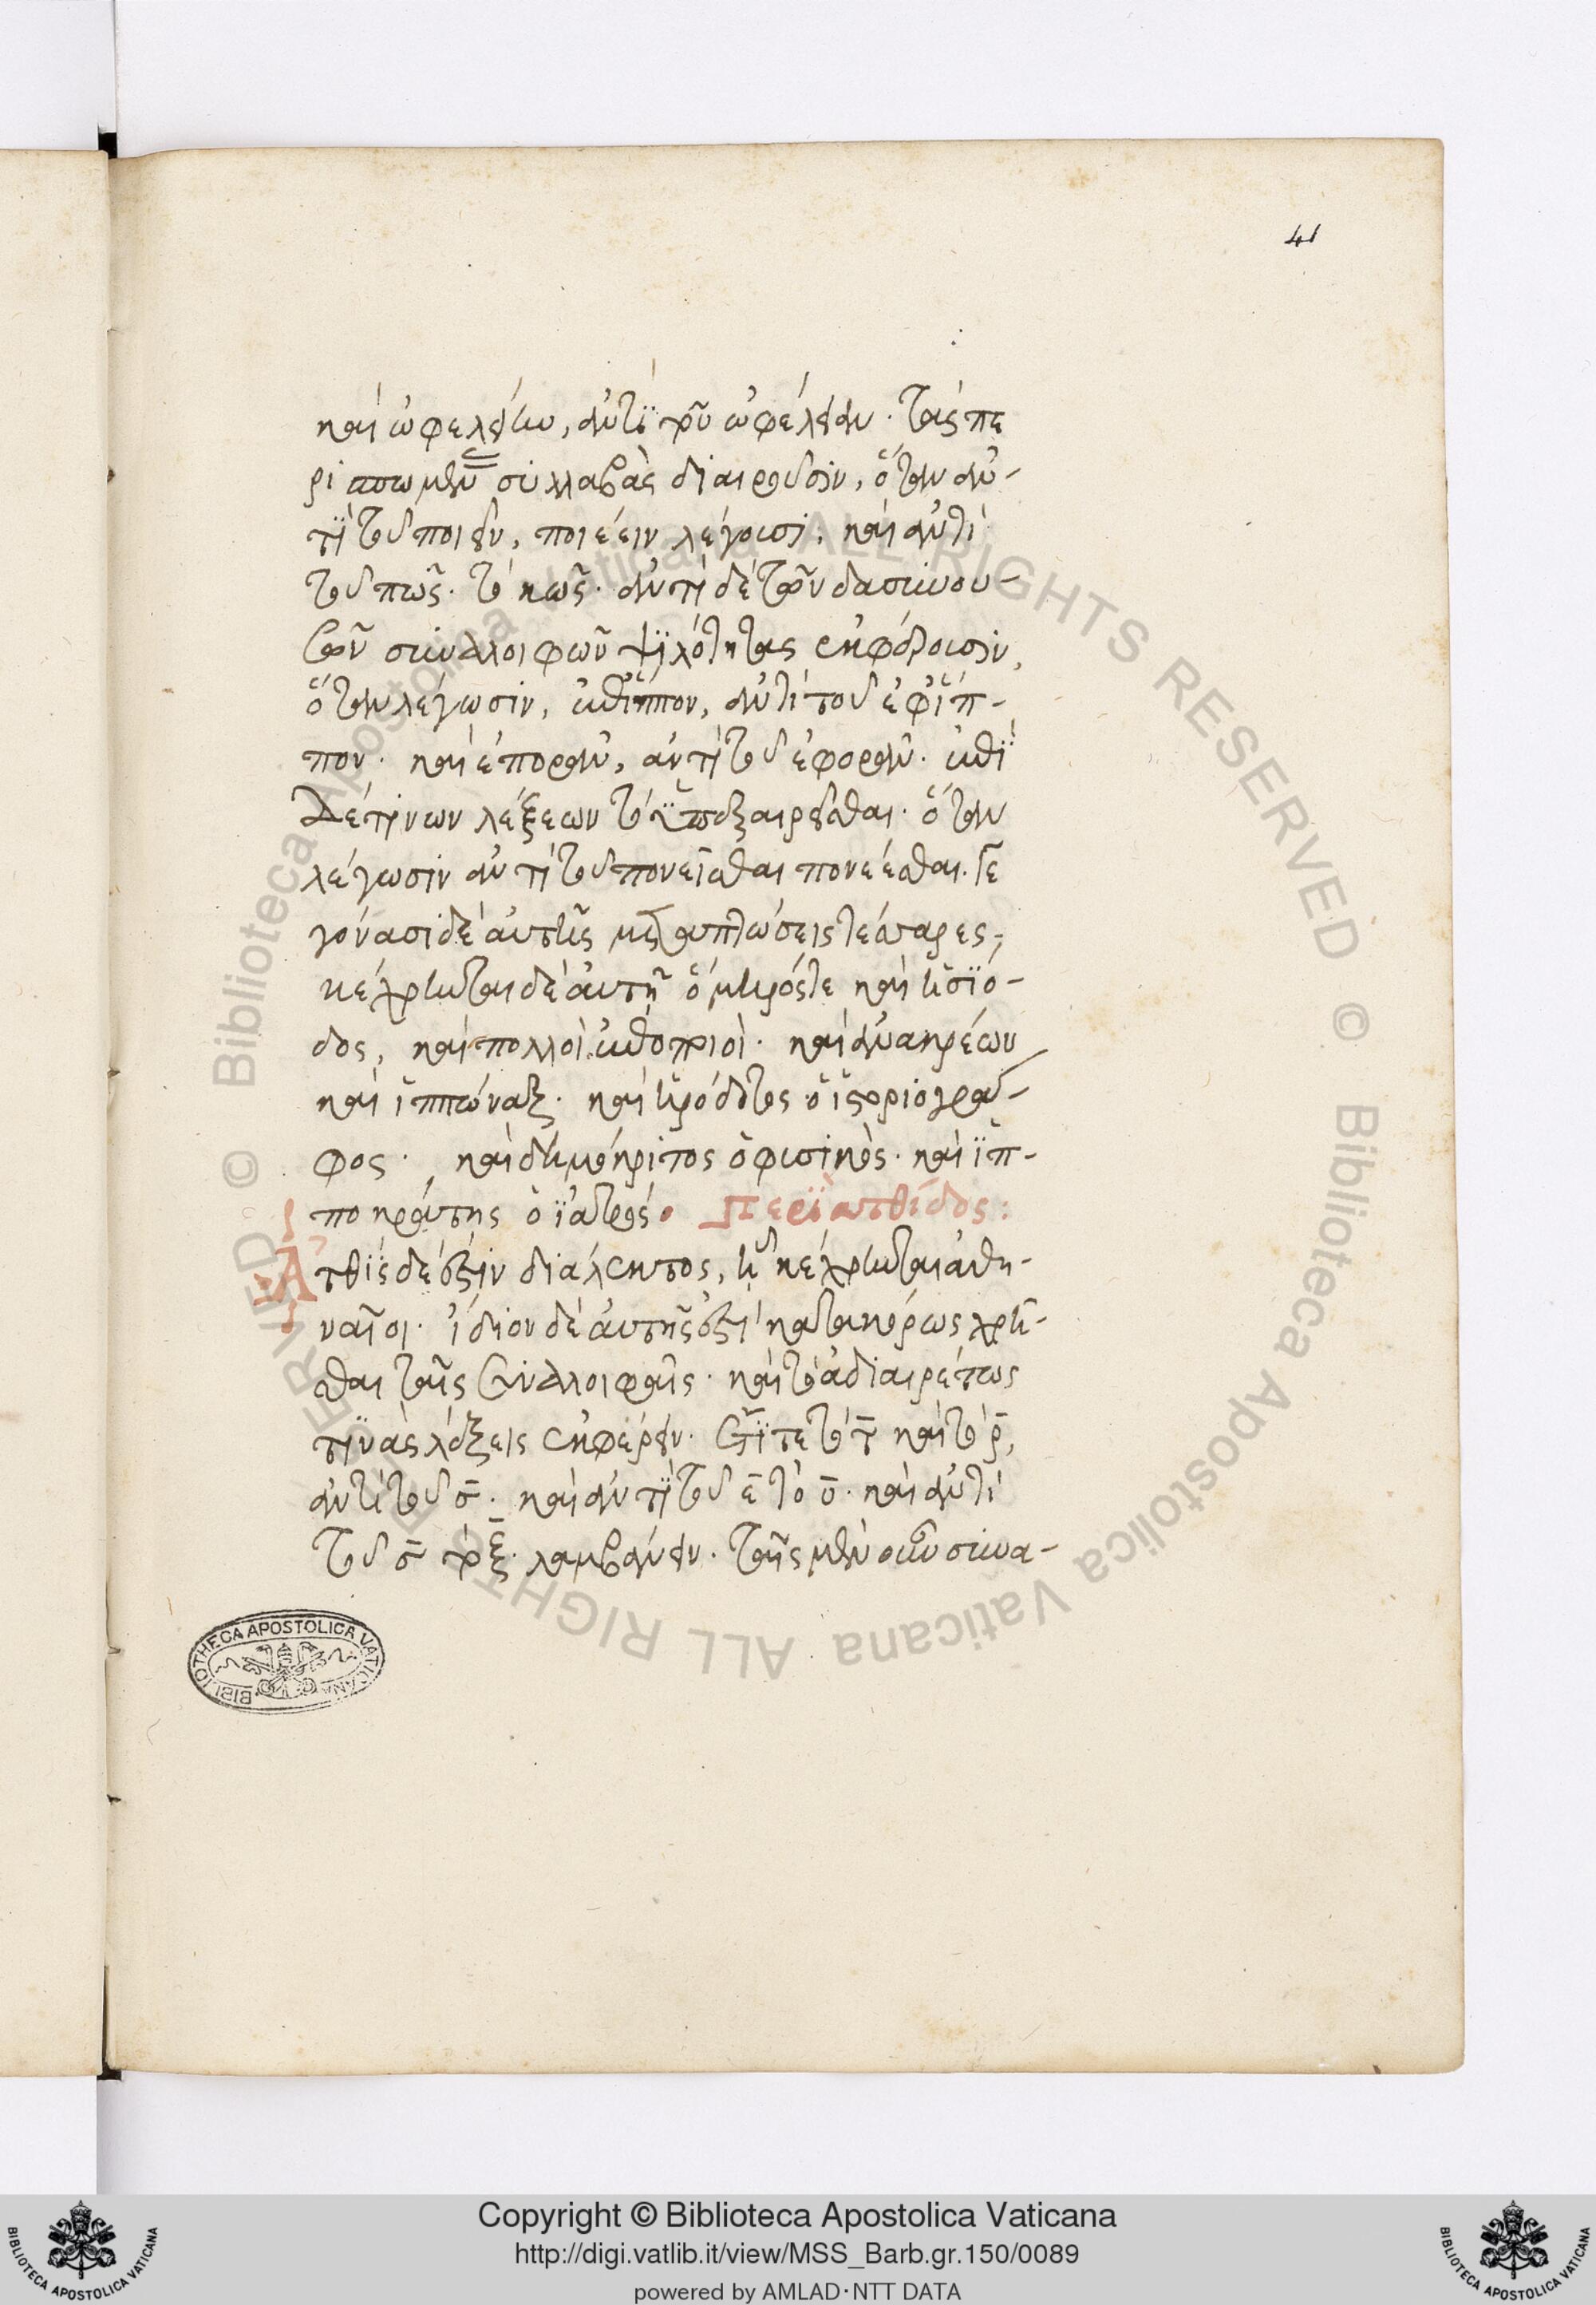 41
καὶ ὠφελέειν, ἀντὶ τοῦ ὠφέλειν. τὰς πε
ρισπωμένας συλλαβὰς διαιροῦσιν, ὅταν ἀν-
τὶ τοῦ ποιεῖν, ποιέειν λέγουσι. καὶ ἀντὶ
τοῦ πῶς. τὸ κῶς. ἀντὶ δὲ τῶν δασυνου-
σῶν συναλοιφῶν ψιλότητας ἐκφέρουσιν,
ὅταν λέγωσιν, ἐπίππον, ἀντὶ τοῦ ἐφίπ-
πον. καὶ ἐπορᾶν, ἀντὶ τοῦ ἐφορᾶν. ἐπὶ
δέ τινων λέξεων τὸ ῑ προσαιρεῖσθαι. ὅταν
λέγωσιν ἀντὶ τοῦ πονεῖσθαι πονέεσθαι. γε
γόνασι δὲ αὐτῆς μεταπτώσεις τέσσαρες,
κέχρηται δὲ αὐτῇ ὅμηρός τε καὶ ἡσίο-
δος, καὶ πολλοὶ ἐποποιοί. καὶ ἀνακρέων
καὶ ἱππώναξ. καὶ ἡρόδοτος ὁ ἱστοριογρά-
φος. καὶ δημόκριτος ὁ φυσικός. καὶ ἱπ-
ποκράτης ὁ ἰατρός. Περὶ ἀτθίδος:
Ἀτθὶς δέ ἐστιν διάλεκτος, ᾗ κέχρηνται ἀθη-
ναῖοι. ἴδιον δὲ αὐτῆς ἐστὶ κατακόρως χρῆ-
σθαι ταῖς συναλοιφαῖς. καὶ τὸ ἀδιαιρέτως
τινὰς λέξεις ἐκφέρειν. ἔτι τε τὸ τ̄ καὶ τὸ ρ̄,
ἀντὶ τοῦ σ̄. καὶ ἀντὶ τοῦ ε̄ τὸ ο̄. καὶ ἀντὶ
τοῦ σ̄ τὸ ξ̄. λαμβάνειν. ταῖς μὲν οὖν συνα-
BIBLIOTHECA APOSTOLICA VATICANA
© Biblioteca Apostolica Vaticana ALL RIGHTS RESERVED
© Biblioteca Apostolica Vaticana ALL RIGHTS RESERVED
Copyright © Biblioteca Apostolica Vaticana
http://digi.vatlib.it/view/MSS_Barb.gr.150/0089
powered by AMLAD·NTT DATA
BIBLIOTECA APOSTOLICA VATICANA
BIBLIOTECA APOSTOLICA VATICANA